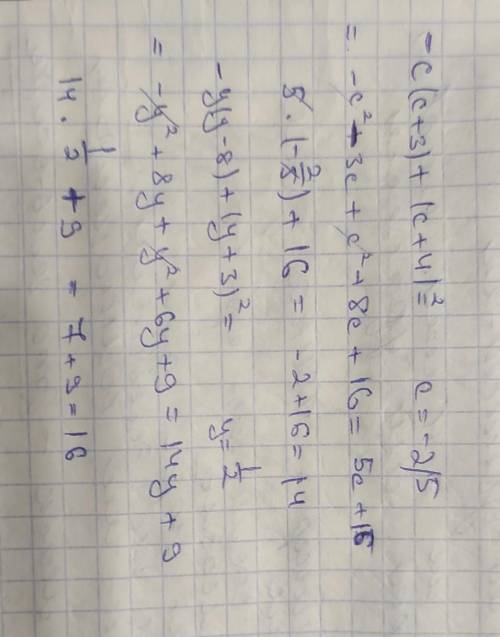 -c(c+3)+(c+4)²= c=-2/5
= -c²-3c+c²+8c+16= 5c+16
5·(-2/5)+16= -2+16=14
-y(y-8)+(y+3)²= y=1/2
= -y²+8y+y²+6y+9=14y+9
14·1/2+9 =7+9=16